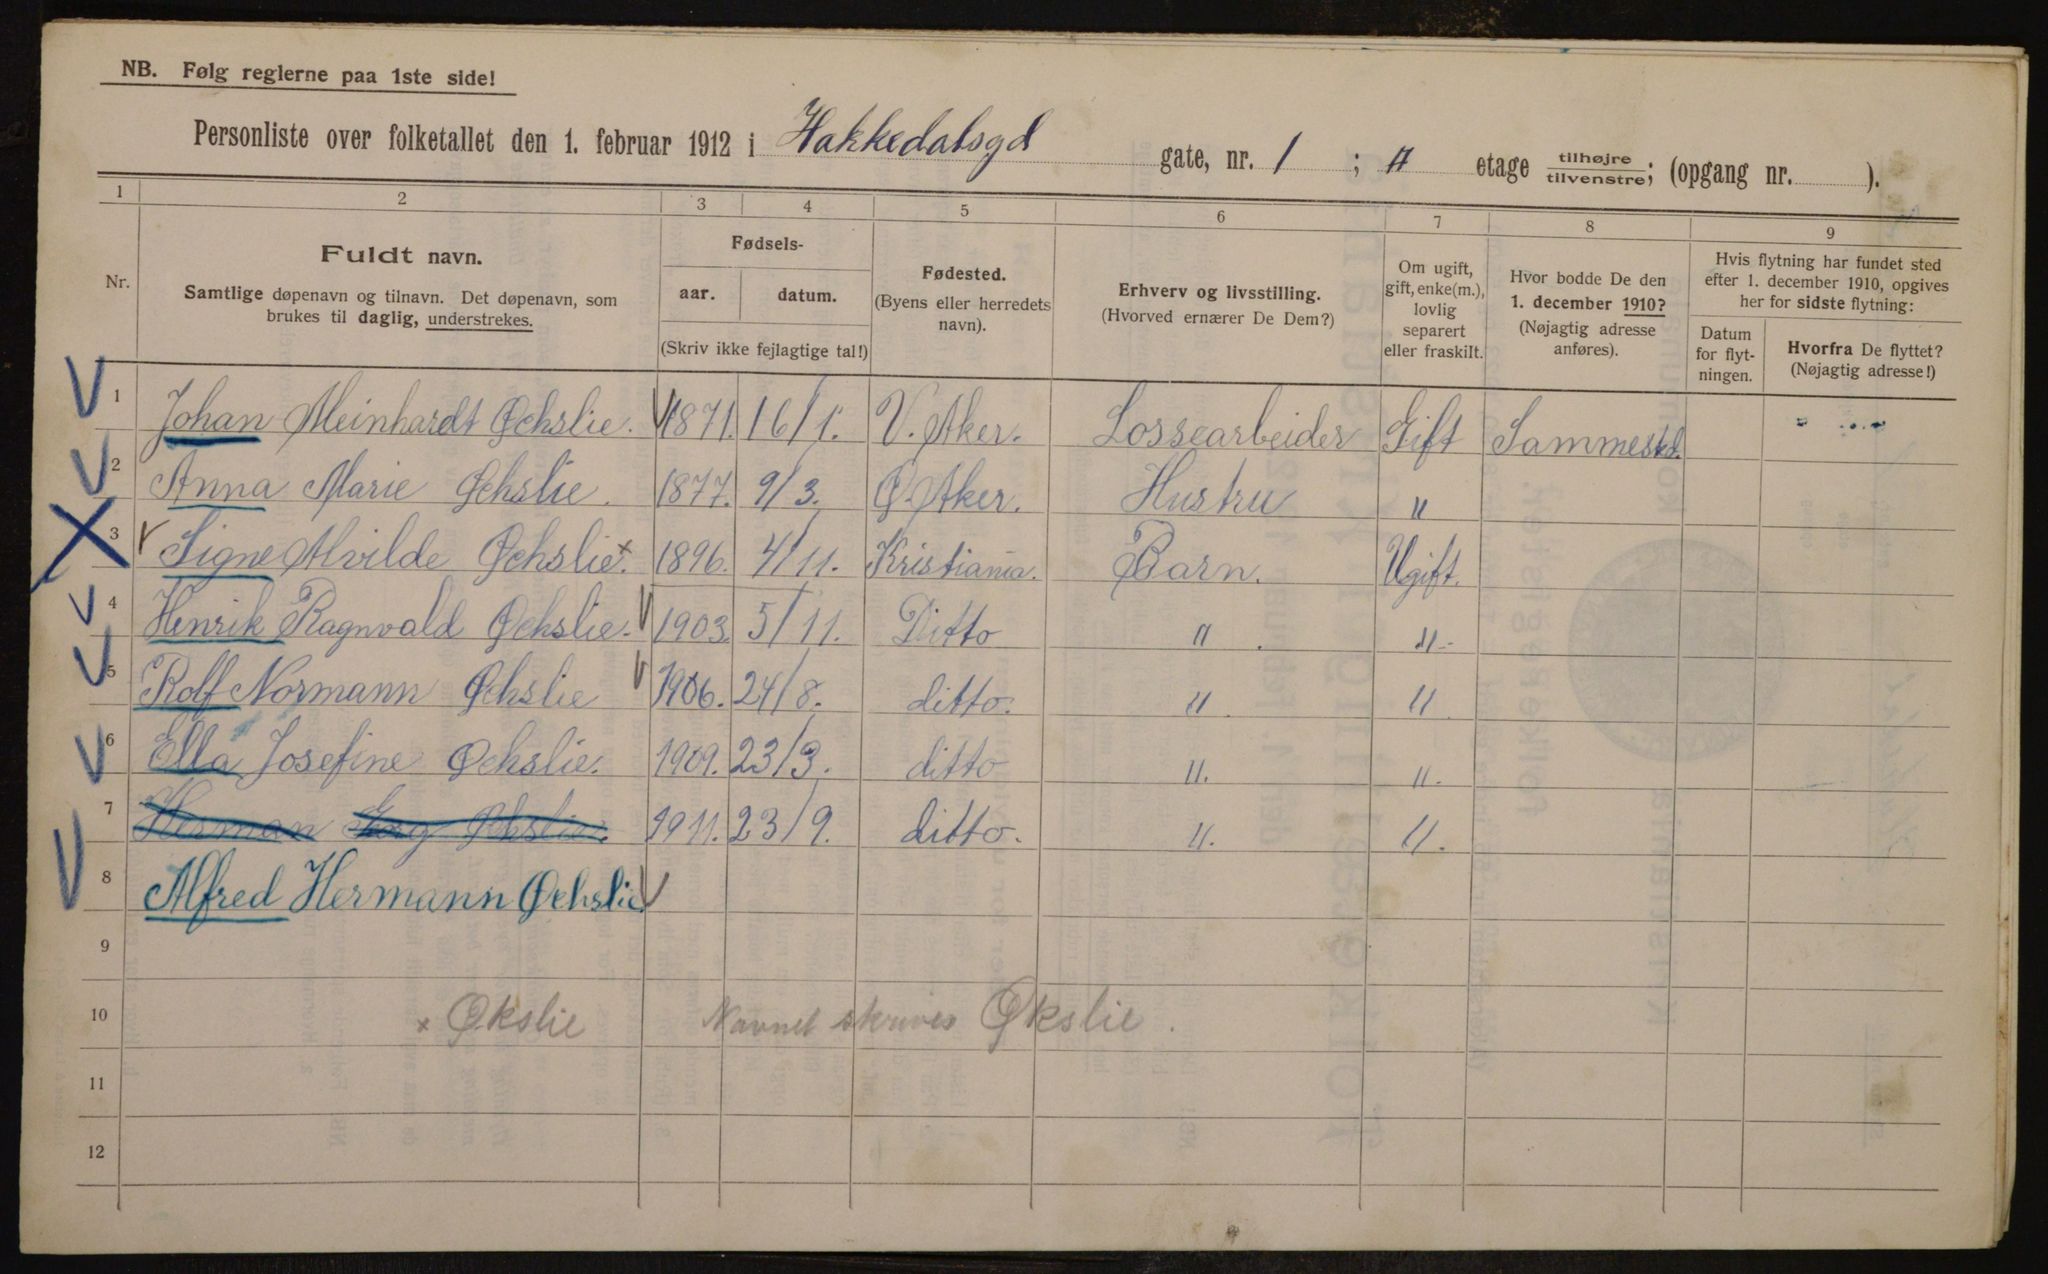 NB. Følg reglerne paa 1ste side!
Personliste over folketallet den 1. februar 1912 i Hakkedalsgd gate, nr. 1 ; II etage tilhøjre tilvenstre; (opgang nr. ).
1 2 3 4 5 6 7 8 9
Nr.
Fuldt navn.
Samtlige døpenavn og tilnavn. Det døpenavn, som
brukes til daglig, understrekes.
Fødsels-
aar. datum.
(Skriv ikke fejlagtige tal!)
Fødested.
(Byens eller herredets
navn).
Erhverv og livsstilling.
(Hvorved ernærer De Dem?)
Om ugift,
gift, enke(m.),
lovlig
separert
eller fraskilt.
Hvor bodde De den
1. december 1910?
(Nøjagtig adresse
anføres).
Hvis flytning har fundet sted
efter 1. december 1910, opgives
her for sidste flytning:
Datum
for flyt-
ningen.
Hvorfra De flyttet?
(Nøjagtig adresse!)
1 Johan Meinhardt Øchslie. 1871. 16/1. V. Aker. Lossearbeider Gift Sammestd.
2 Anna Marie Øchslie. 1877. 9/3. Ø. Aker. Hustru "
3 Signe Alvilde Øchslie. x 1896. 4/11. Kristiania. Barn. Ugift.
4 Henrik Ragnvald Øchslie. 1903. 5/11. Ditto " "
5 Rolf Normann Øchslie 1906. 24/8. ditto. " "
6 Ella Josefine Øchslie. 1909. 23/3. ditto ". ".
7 Herman Georg Øchslie. 1911. 23/9. ditto. ". ".
8 Alfred Hermann Øchslie
9
10 x Økslie Navnet skrives Økslie.
11
12